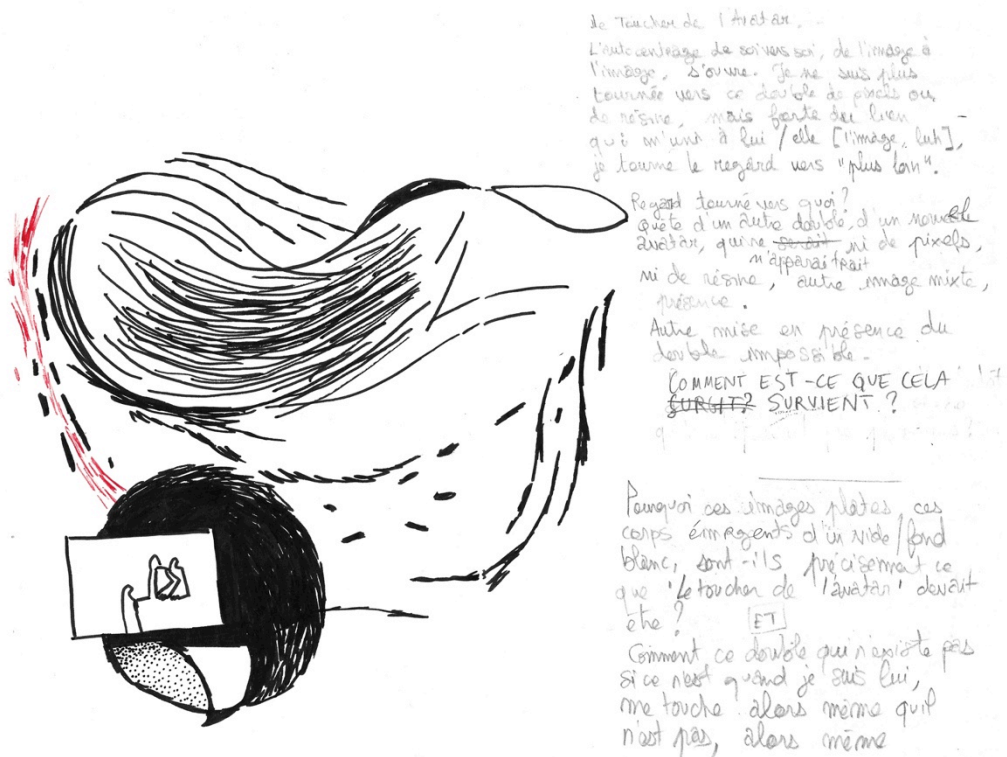 Le Toucher de l'Avatar.
L'autocentrage de soi vers soi, de l'image à
l'image, s'ouvre. Je ne suis plus
tournée vers ce double de pixels ou
de résine, mais forte du lien
qui m'unit à lui / elle [l'image, lui],
je tourne le regard vers "plus loin".
Regard tourné vers quoi?
Quête d'un autre double, d'un nouvel
avatar, qui ne serait ni de pixels,
n'apparaîtrait
ni de résine, autre image mixte,
présence.
Autre mise en présence du
double impossible.
COMMENT EST-CE QUE CELA
SURGIT? SURVIENT ?
Pourquoi ces images plates, ces
corps émergents d'un vide/fond
blanc, sont-ils précisément ce
que 'Le toucher de l'avatar' devait
être ?
ET
Comment ce double qui n'existe pas
si ce n'est quand je suis lui,
me touche alors même qu'il
n'est pas, alors même